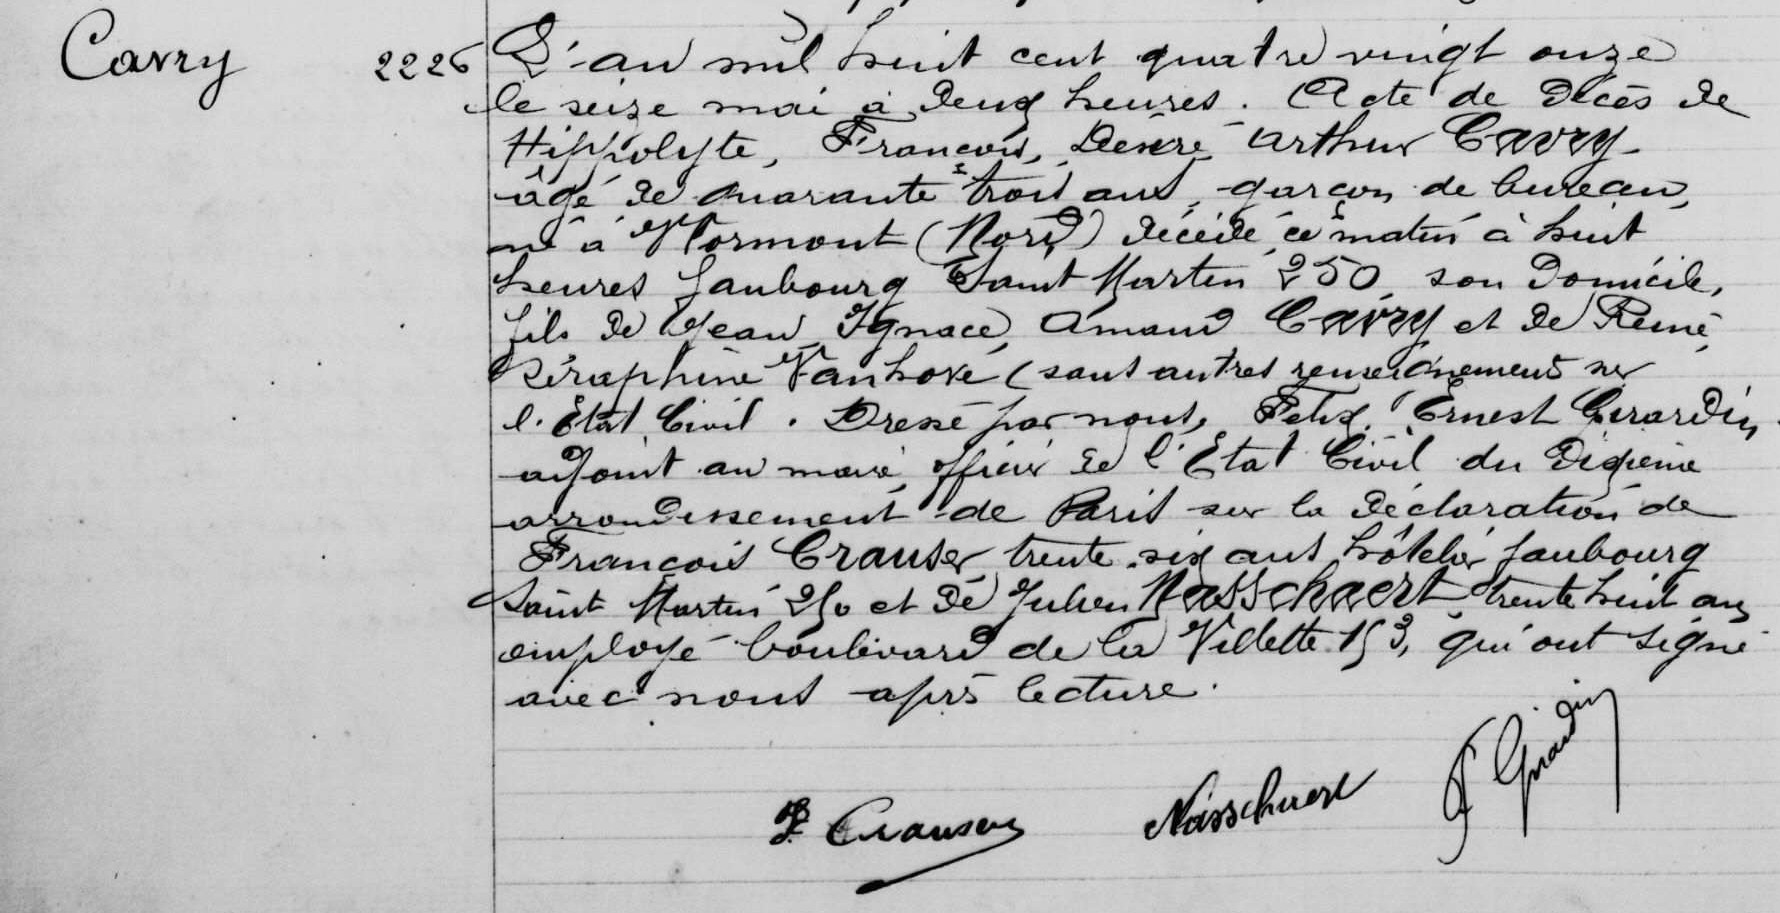 Cavry 2226 L'an mil huit cent quatre vingt onze
le seize mai à deux heures. Acte de décès de
Hippolyte, François, Désiré, Arthur Cavry
âgé de quarante trois ans, garçon de bureau,
né à Wormont (Nord) décédé ce matin à huit
heures faubourg Saint Martin 250 son domicile,
fils de Jean, Ignace, Amand Cavry et de Reine
Séraphine Vanhove (sans autres renseignements sur
l'État Civil. Dressé par nous, Felix Ernest Girardin,
adjoint au maire, officier de l'État Civil du dixième
arrondissement de Paris sur la déclaration de
François Crauser, trente six ans hôtelier faubourg
Saint Martin 250 et de Julien Nasschaert trente huit ans
employé boulevard de la Villette 153, qui ont signé
avec nous après lecture.
F. Crauser Nasschaert F Girardin